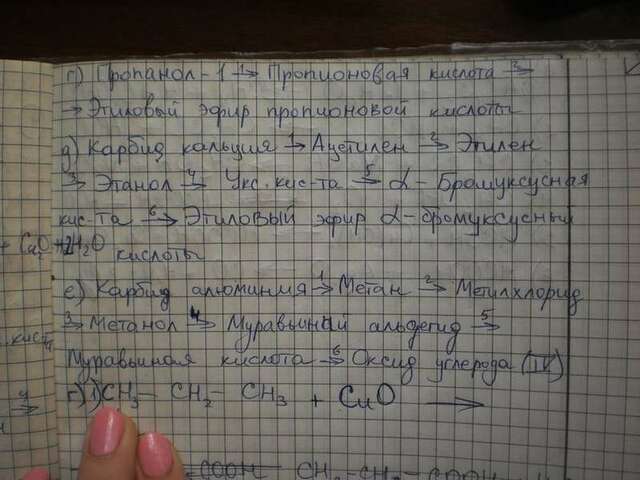 г) Пропанол-1 1→ Пропионовая кислота 2→
→ Этиловый эфир пропионовой кислоты
д) Карбид кальция 1→ Ацетилен 2→ Этилен
3→ Этанол 4→ Укс. кис-та 5→ α-Бромуксусная
кис-та 6→ Этиловый эфир α-бромуксусный
+ CuO + H2O
кислоты
е) Карбид алюминия 1→ Метан 2→ Метилхлорид
3→ Метанол 4→ Муравьиный альдегид 5→
Муравьиная кислота 6→ Оксид углерода (IV)
г) 1) CH3 - CH2 - CH3 + CuO →
4→
COOH CH3-CH2-COOH